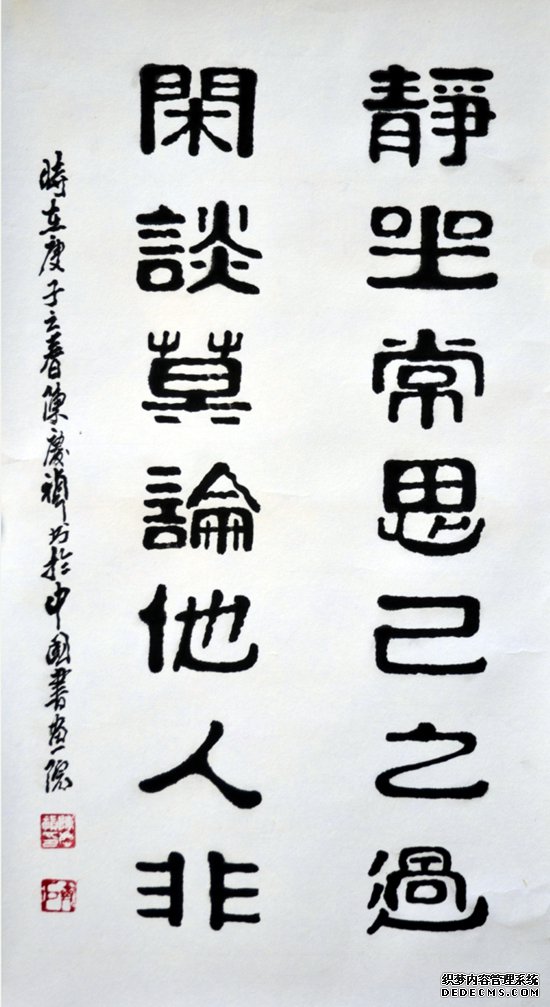 靜坐常思己之過
閑談莫論他人非
時在庚子之春陳慶禎书於中国書画院
织梦内容管理系统
DEDECMS.COM